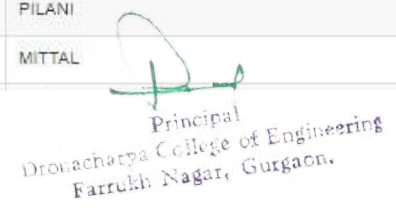 PILANI
MITTAL
Principal
Dronacharya College of Engineering
Farrukh Nagar, Gurgaon.